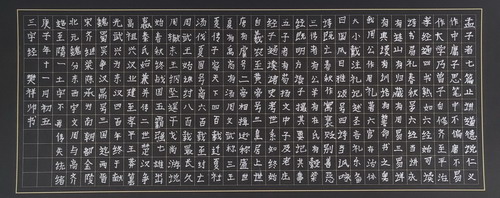 孟子者七篇止讲道德说仁义
作中庸子思笔中不偏庸不易
作大学乃曾子自修齐至平治
孝经通四书熟如六经始可读
诗书易礼春秋号六经当讲求
有连山有归藏有周易三易详
有典谟有训诰有誓命书之奥
我周公作周礼著六官存治体
大小戴注礼记述圣言礼乐备
曰国风曰雅颂号四诗当讽咏
诗既亡春秋作寓褒贬别善恶
三传者有公羊有左氏有穀梁
经既明方读子撮其要记其事
五子者有荀杨文中子及老庄
经子通读诸史考世系知终始
自羲农至黄帝号三皇居上世
唐有虞号二帝相揖逊称盛世
夏有禹商有汤周文武称三王
夏传子家天下四百载迁夏社
汤伐夏国号商六百载至纣亡
周武王始诛纣八百载最长久
周辙东王纲坠逞干戈尚游说
始春秋终战国五霸强七雄出
嬴秦氏始兼并传二世楚汉争
高祖兴汉业建至孝平王莽篡
光武兴为东汉四百年终于献
魏蜀吴争汉鼎号三国迄两晋
宋齐继梁陈承为南朝都金陵
北元魏分东西宇文周与高齐
迨至隋一土宇不再传失统绪
庚子年十一月初五
三字经 樊祥帅书